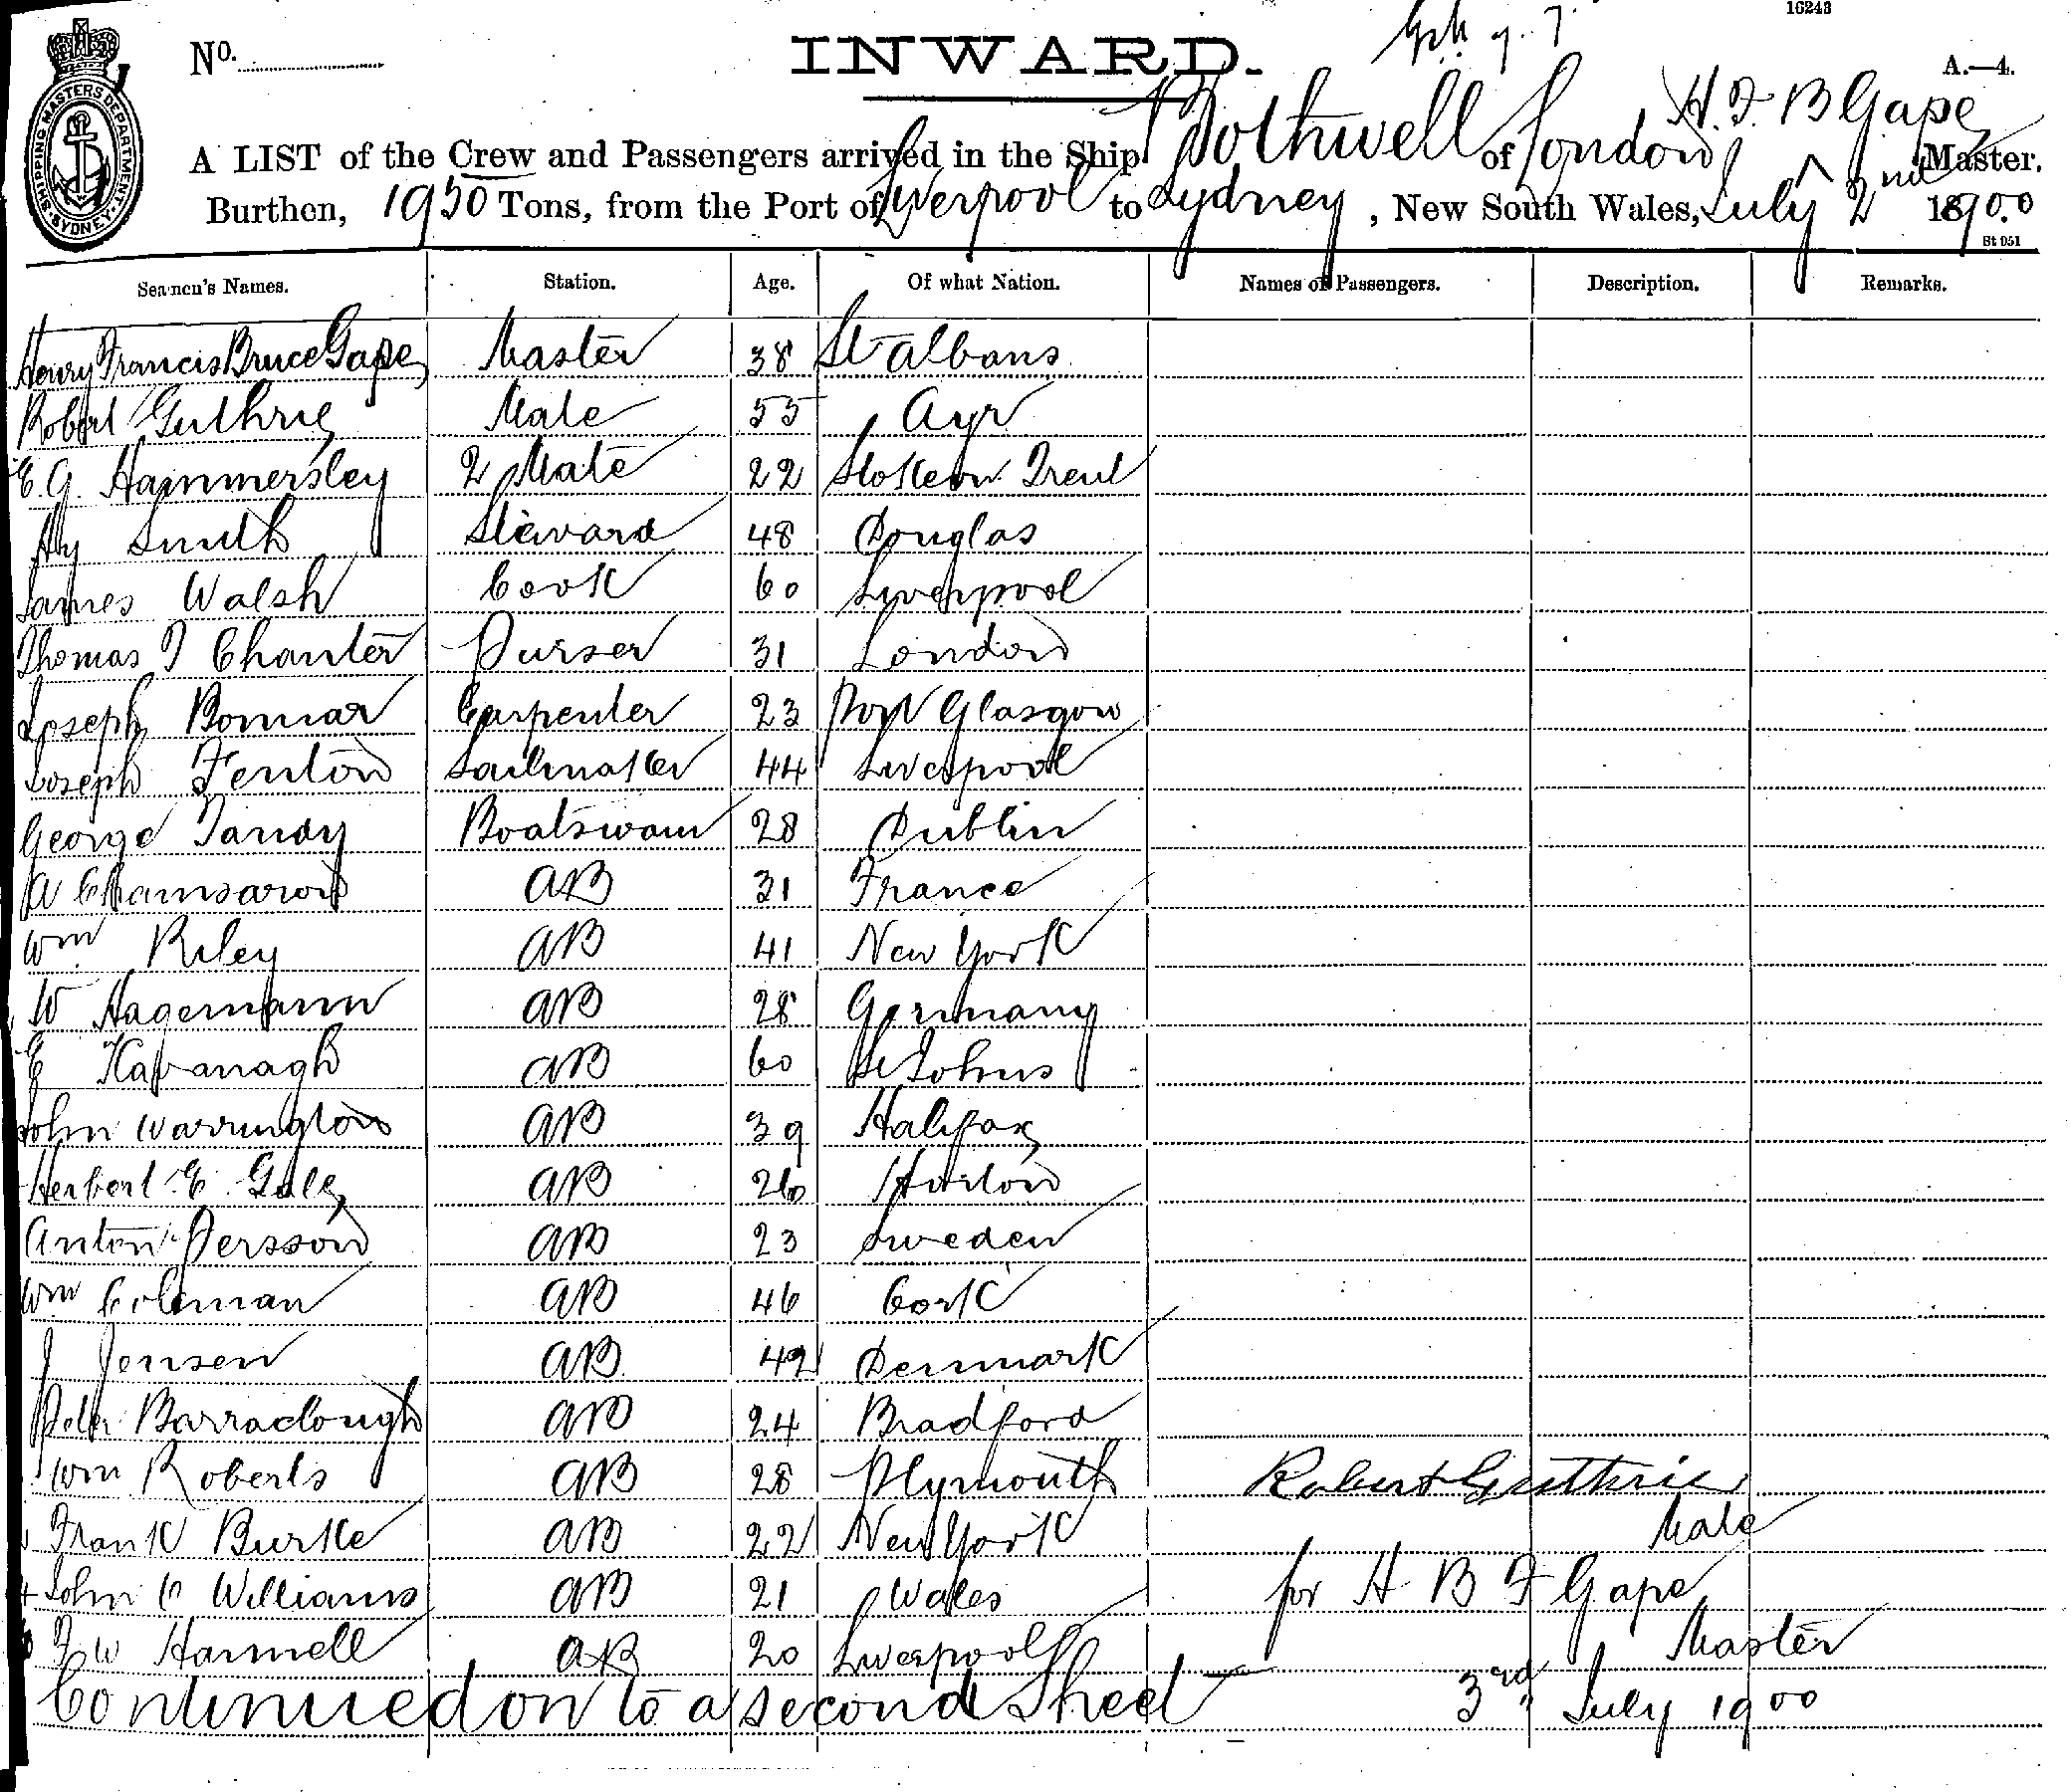 16243
No. INWARD. A.—4.
SHIPPING MASTERS DEPARTMENT SYDNEY
H. F. B Gape
A LIST of the Crew and Passengers arrived in the Ship Bothwell of London Master.
Burthen, 1950 Tons, from the Port of Liverpool to Sydney, New South Wales, July 2nd 1900
St 051
Seamen's Names. Station. Age. Of what Nation. Names of Passengers. Description. Remarks.
Henry Francis Bruce Gape Master 38 St Albans
Robert Guthrie Mate 55 Ayr
E. G. Hammersley 2 Mate 22 Stoke on Trent
Hy Smith Steward 48 Douglas
James Walsh Cook 60 Liverpool
Thomas T Chanter Purser 31 London
Joseph Bomar Carpenter 23 Port Glasgow
Joseph Fenton Sailmaker 44 Liverpool
George Tandy Boatswain 28 Dublin
A AB 31 France
Wm Riley AB 41 New York
W Hagemann AB 28 Germany
E Kavanagh AB 60 St Johns
John Warrington AB 39 Halifax
Herbert E. Gale AB 26
Anton Persson AB 23 Sweden
Wm Coleman AB 46 Cork
J Jensen AB 42 Denmark
Peter Barraclough AB 24 Bradford
Wm Roberts AB 28 Plymouth Robert Guthrie
Frank Burke AB 22 New York Mate
John C Williams AB 21 Wales for H B F Gape
F W Harnell AB 20 Liverpool Master
Continued on to a second Sheet 3rd July 1900